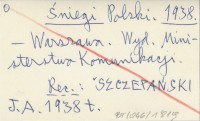 Śniegi Polski. 1938.
– Warszawa. Wyd. Mini-
sterstwa Komunikacji.
Rec.: SZCZEPAŃSKI
J.A. 1938 t.